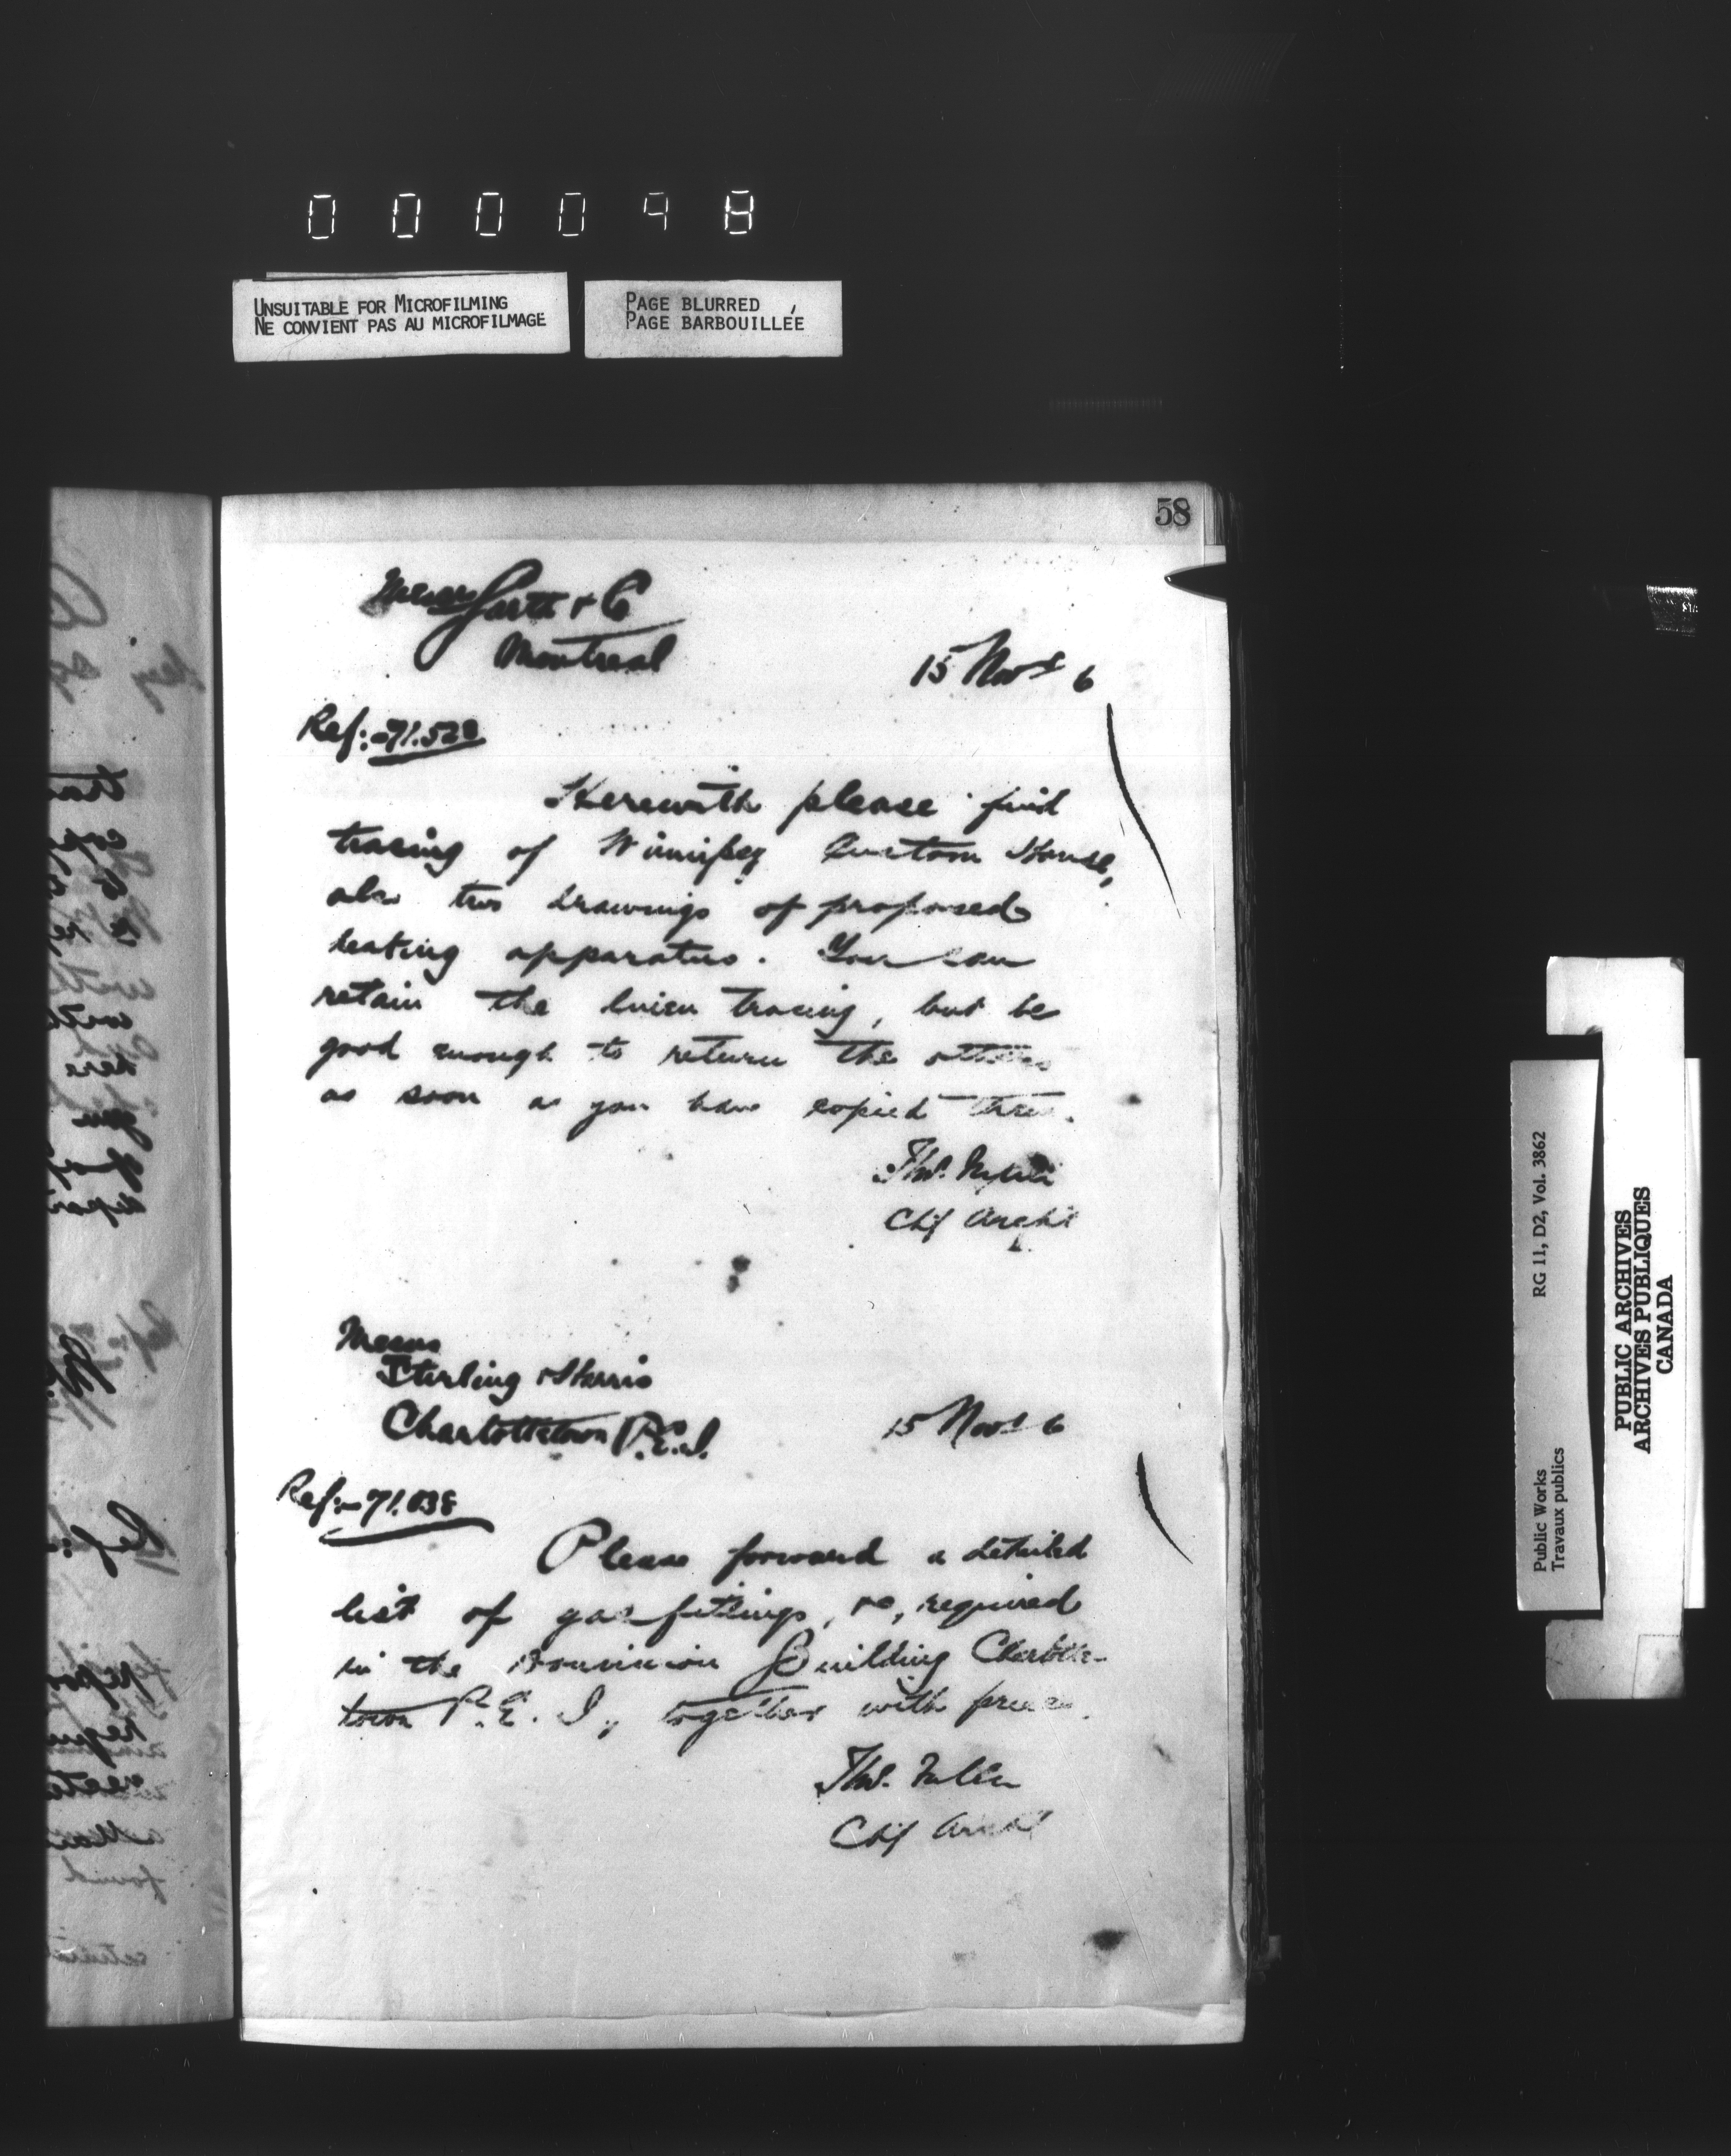 000098
UNSUITABLE FOR MICROFILMING
NE CONVIENT PAS AU MICROFILMAGE
PAGE BLURRED
PAGE BARBOUILLÉE
58
Messrs Garth & Co
Montreal
15 Novr 6
Ref:-71.528
Herewith please find
tracing of Winnipeg Custom House,
also two drawings of proposed
heating apparatus. You can
retain the linen tracing, but be
good enough to return the others
as soon as you have copied them.
Thos. Fuller
Chf Archt
Messrs
Sterling & Harris
Charlottetown P.E.I.
15 Novr 6
Ref:-71.038
Please forward a detailed
list of gas fittings, &c, required
in the Dominion Building Charlotte-
town P.E.I., together with prices.
Thos. Fuller
Chf Archt
Public Works
Travaux publics
RG 11, D2, Vol. 3862
PUBLIC ARCHIVES
ARCHIVES PUBLIQUES
CANADA